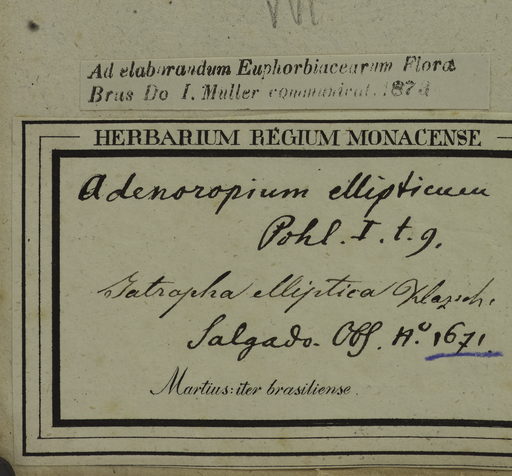 Ad elaborandum Euphorbiacearum Floræ
Bras Do I. Muller communicat. 1873
HERBARIUM REGIUM MONACENSE
Adenoropium ellipticum
Pohl. I. t. 9.
Jatropha elliptica
Salgado. Obs. No 1671.
Martius: iter brasiliense.